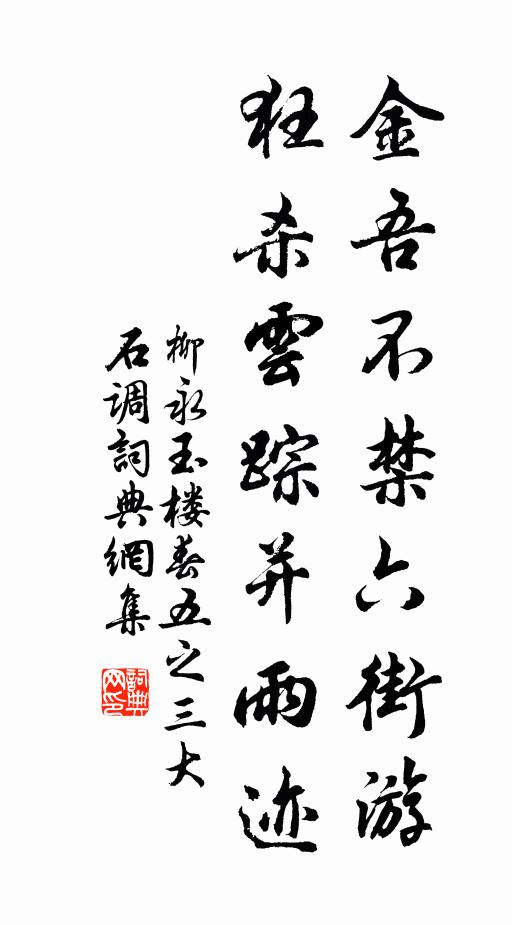 金吾不禁六街游
狂杀雲踪并雨迹
柳永玉楼春五之三大
石调詞典網集
詞典
网印